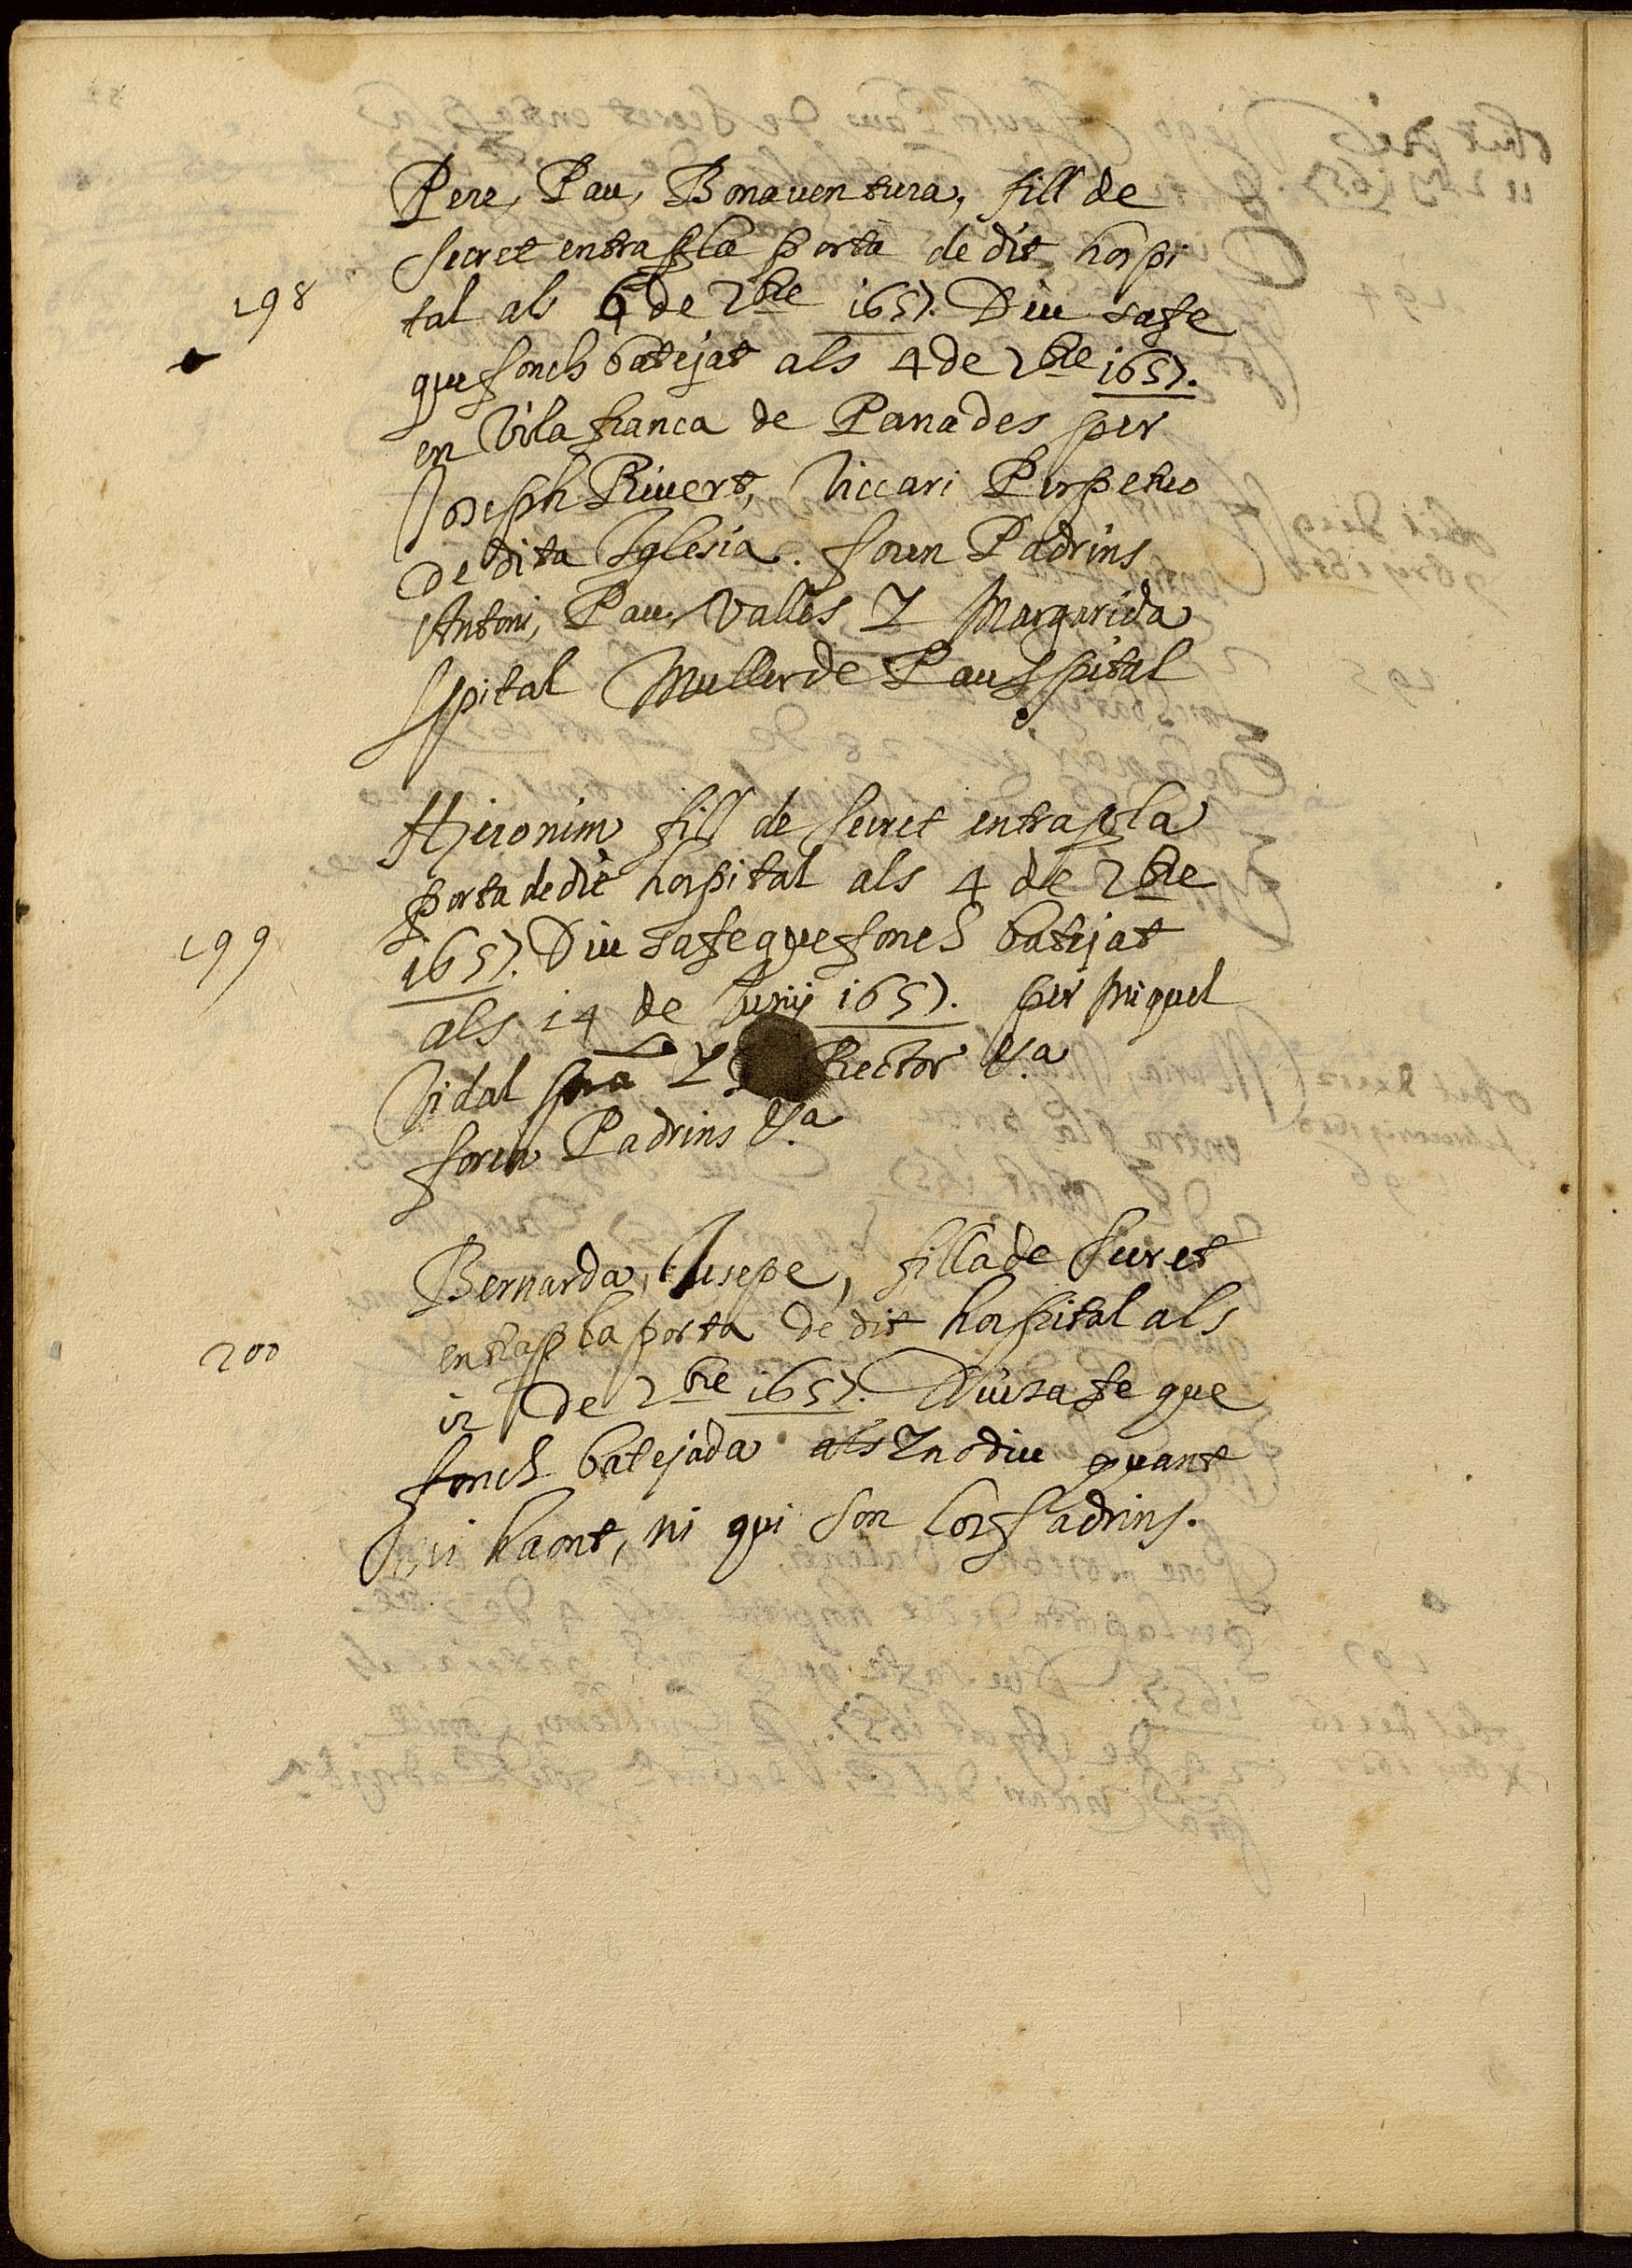 Pere, Pau, Bonaventura, fill de
secret entra p la porta de dit hospi
198
tal als 6 de 7bre 1657. Diu sa fe
que fonch batejat als 4 de 7bre 1657.
en Vila franca de Panades per
Joseph Rivert, Viccari Perpetuo
de dita Iglesia. foren Padrins
Antoni, Pau, Valles Y Margarida
Spital Muller de Pau Spital
Hieronim fill de secret entra p la
porta de dit hospital als 4 de 7bre
199
1657. Diu sa fe que fonch batejat
als 14 de Juny 1657. per Miquel
Vidal Rector &.a
foren Padrins &.a
Bernarda, Jusepe, filla de secret
entra p la porta de dit hospital als
200
12 de 7bre 1657. Diu sa fe que
fonch batejada als Y no diu quant
ni haont, ni qui son los Padrins.